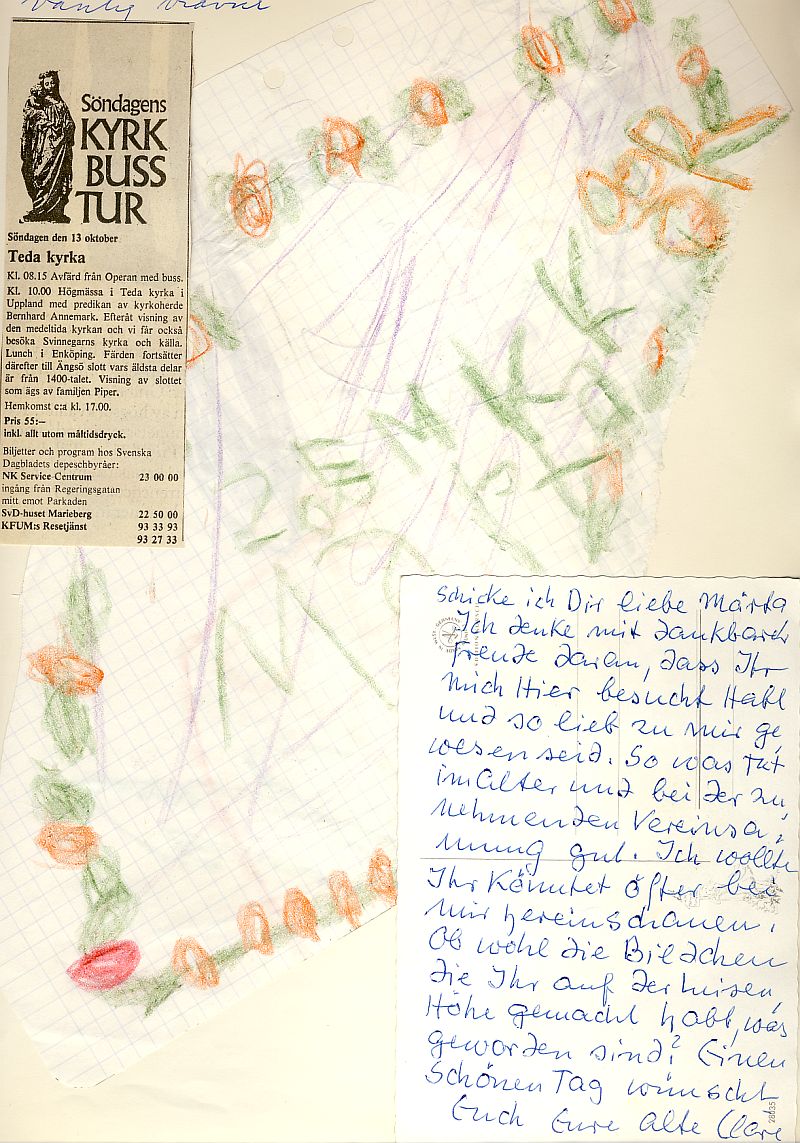 Söndagens
KYRK
BUSS
TUR
Söndagen den 13 oktober
Teda kyrka
Kl. 08.15 Avfärd från Operan med buss.
Kl. 10.00 Högmässa i Teda kyrka i
Uppland med predikan av kyrkoherde
Bernhard Annemark. Efteråt visning av
den medeltida kyrkan och vi får också
besöka Svinnegarns kyrka och källa.
Lunch i Enköping. Färden fortsätter
därefter till Ängsö slott vars äldsta delar
är från 1400-talet. Visning av slottet
som ägs av familjen Piper.
Hemkomst c:a kl. 17.00.
Pris 55:–
inkl. allt utom måltidsdryck.
Biljetter och program hos Svenska
Dagbladets depeschbyråer:
NK Service-Centrum 23 00 00
ingång från Regeringsgatan
mitt emot Parkaden
SvD-huset Marieberg 22 50 00
KFUM:s Resetjänst 93 33 93
93 27 33
schicke ich Dir liebe Märta
Ich denke mit dankbarer
Freude daran, dass Ihr
mich Hier besucht Habt
und so lieb zu mir ge,
wesen seid. So was tut
im Alter und bei der zu
nehmenden Vereinsa,
mung gut. Ich wollte
Ihr Könntet öfter bei
mir hereinschauen.
Ob wohl die Bildchen
die Ihr auf der
Höhe gemacht habt, was
geworden sind? Einen
Schönen Tag wünscht
Euch Eure alte Clare
28635